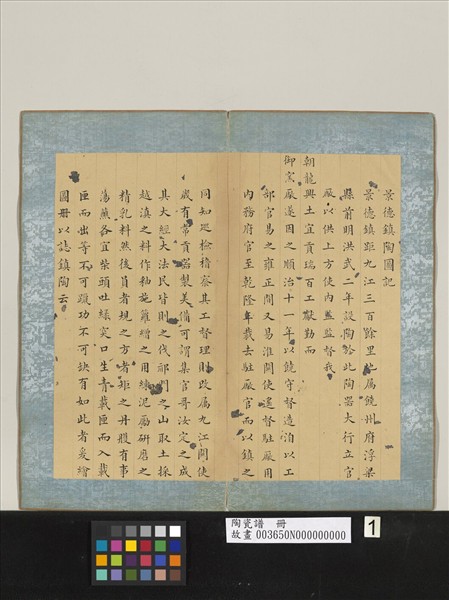 景德鎮陶圖記
景德鎮距九江三百餘里屬饒州府浮梁
縣前明洪武二年設陶於此陶器大行立官
廠以供上方使內監督我
朝龍興土宜貢瑞百工獻勤而
御窯廠遂因之順治十一年以饒守督造洎以工
部官易之雍正間又易淮關使遙督駐廠用
內務府官至乾隆年裁去駐廠官而以鎮之
同知巡檢稽察其工督理則改屬九江關使
歲有常貢器製美備可謂集官哥汝定之成
其大經大法民皆則之伐祁門之山取土採
越滇之料作釉施繪之用練泥廠研磨之
精乳料然後員者規之方者矩之丹艧有事
蕩薰各宜柴頭吐綠窯口生青載匣而入載
匣而出等不可躐功不可缺有如此者爰繪
圖冊以誌鎮陶云
陶瓷譜 冊
故畫 003650N000000000
1